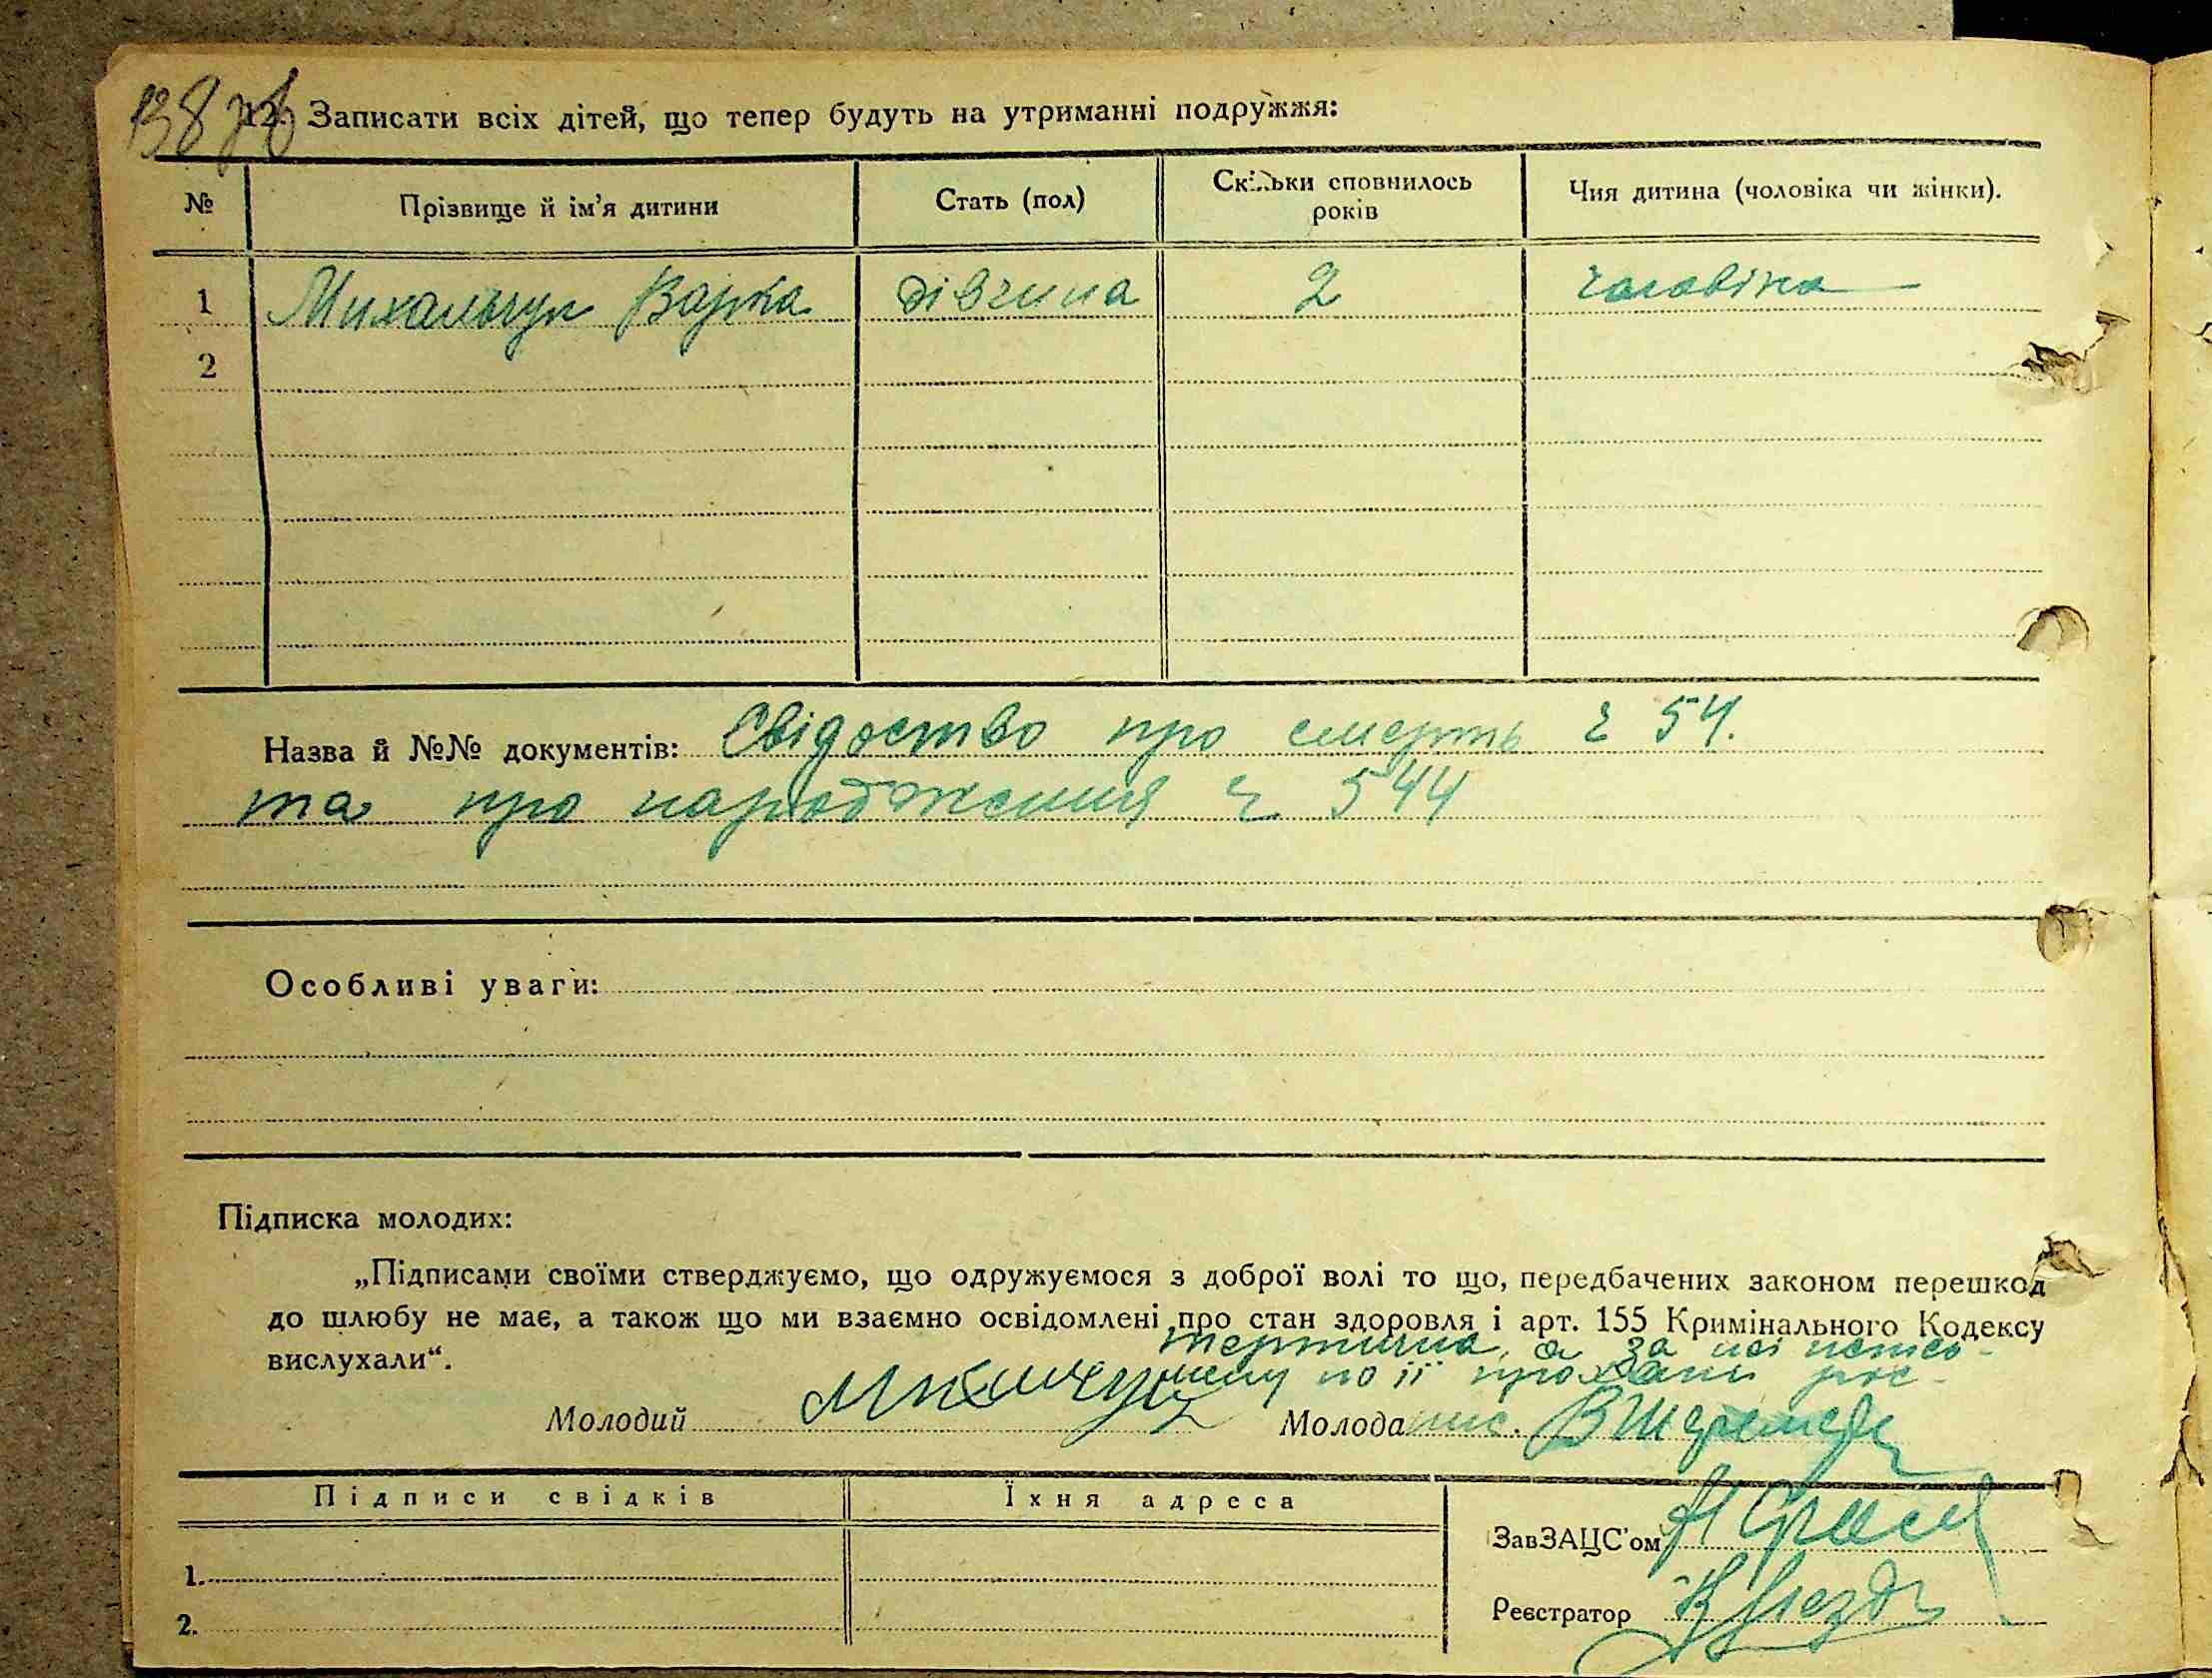 138 зв
12. Записати всіх дітей, що тепер будуть на утриманні подружжя:
№ Прізвище й ім'я дитини Стать (пол) Скільки сповнилось років Чия дитина (чоловіка чи жінки).
1 Михальчук Варка дівчина 2 чоловіка
2
Назва й №№ документів: Свідоство про смерть ч 54.
та про народження ч 544
Особливі уваги:
Підписка молодих:
„Підписами своїми стверджуємо, що одружуємося з доброї волі то що, передбачених законом перешкод
до шлюбу не має, а також що ми взаємно освідомлені про стан здоровля і арт. 155 Кримінального Кодексу
вислухали“.
а за неї непись-
мену по її прохані рос-
Молодий Молода пис.
Підписи свідків Їхня адреса
ЗавЗАЦС'ом
1.
Реєстратор
2.